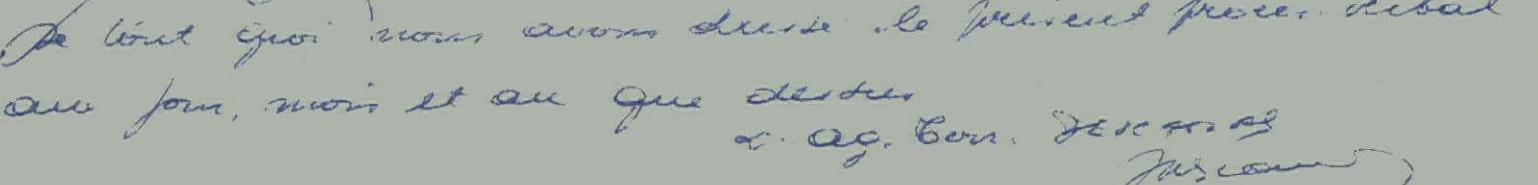 De tout quoi nous avons dressé le présent procès-verbal
aux jour, mois et an que dessus
L. Ag. Terr.